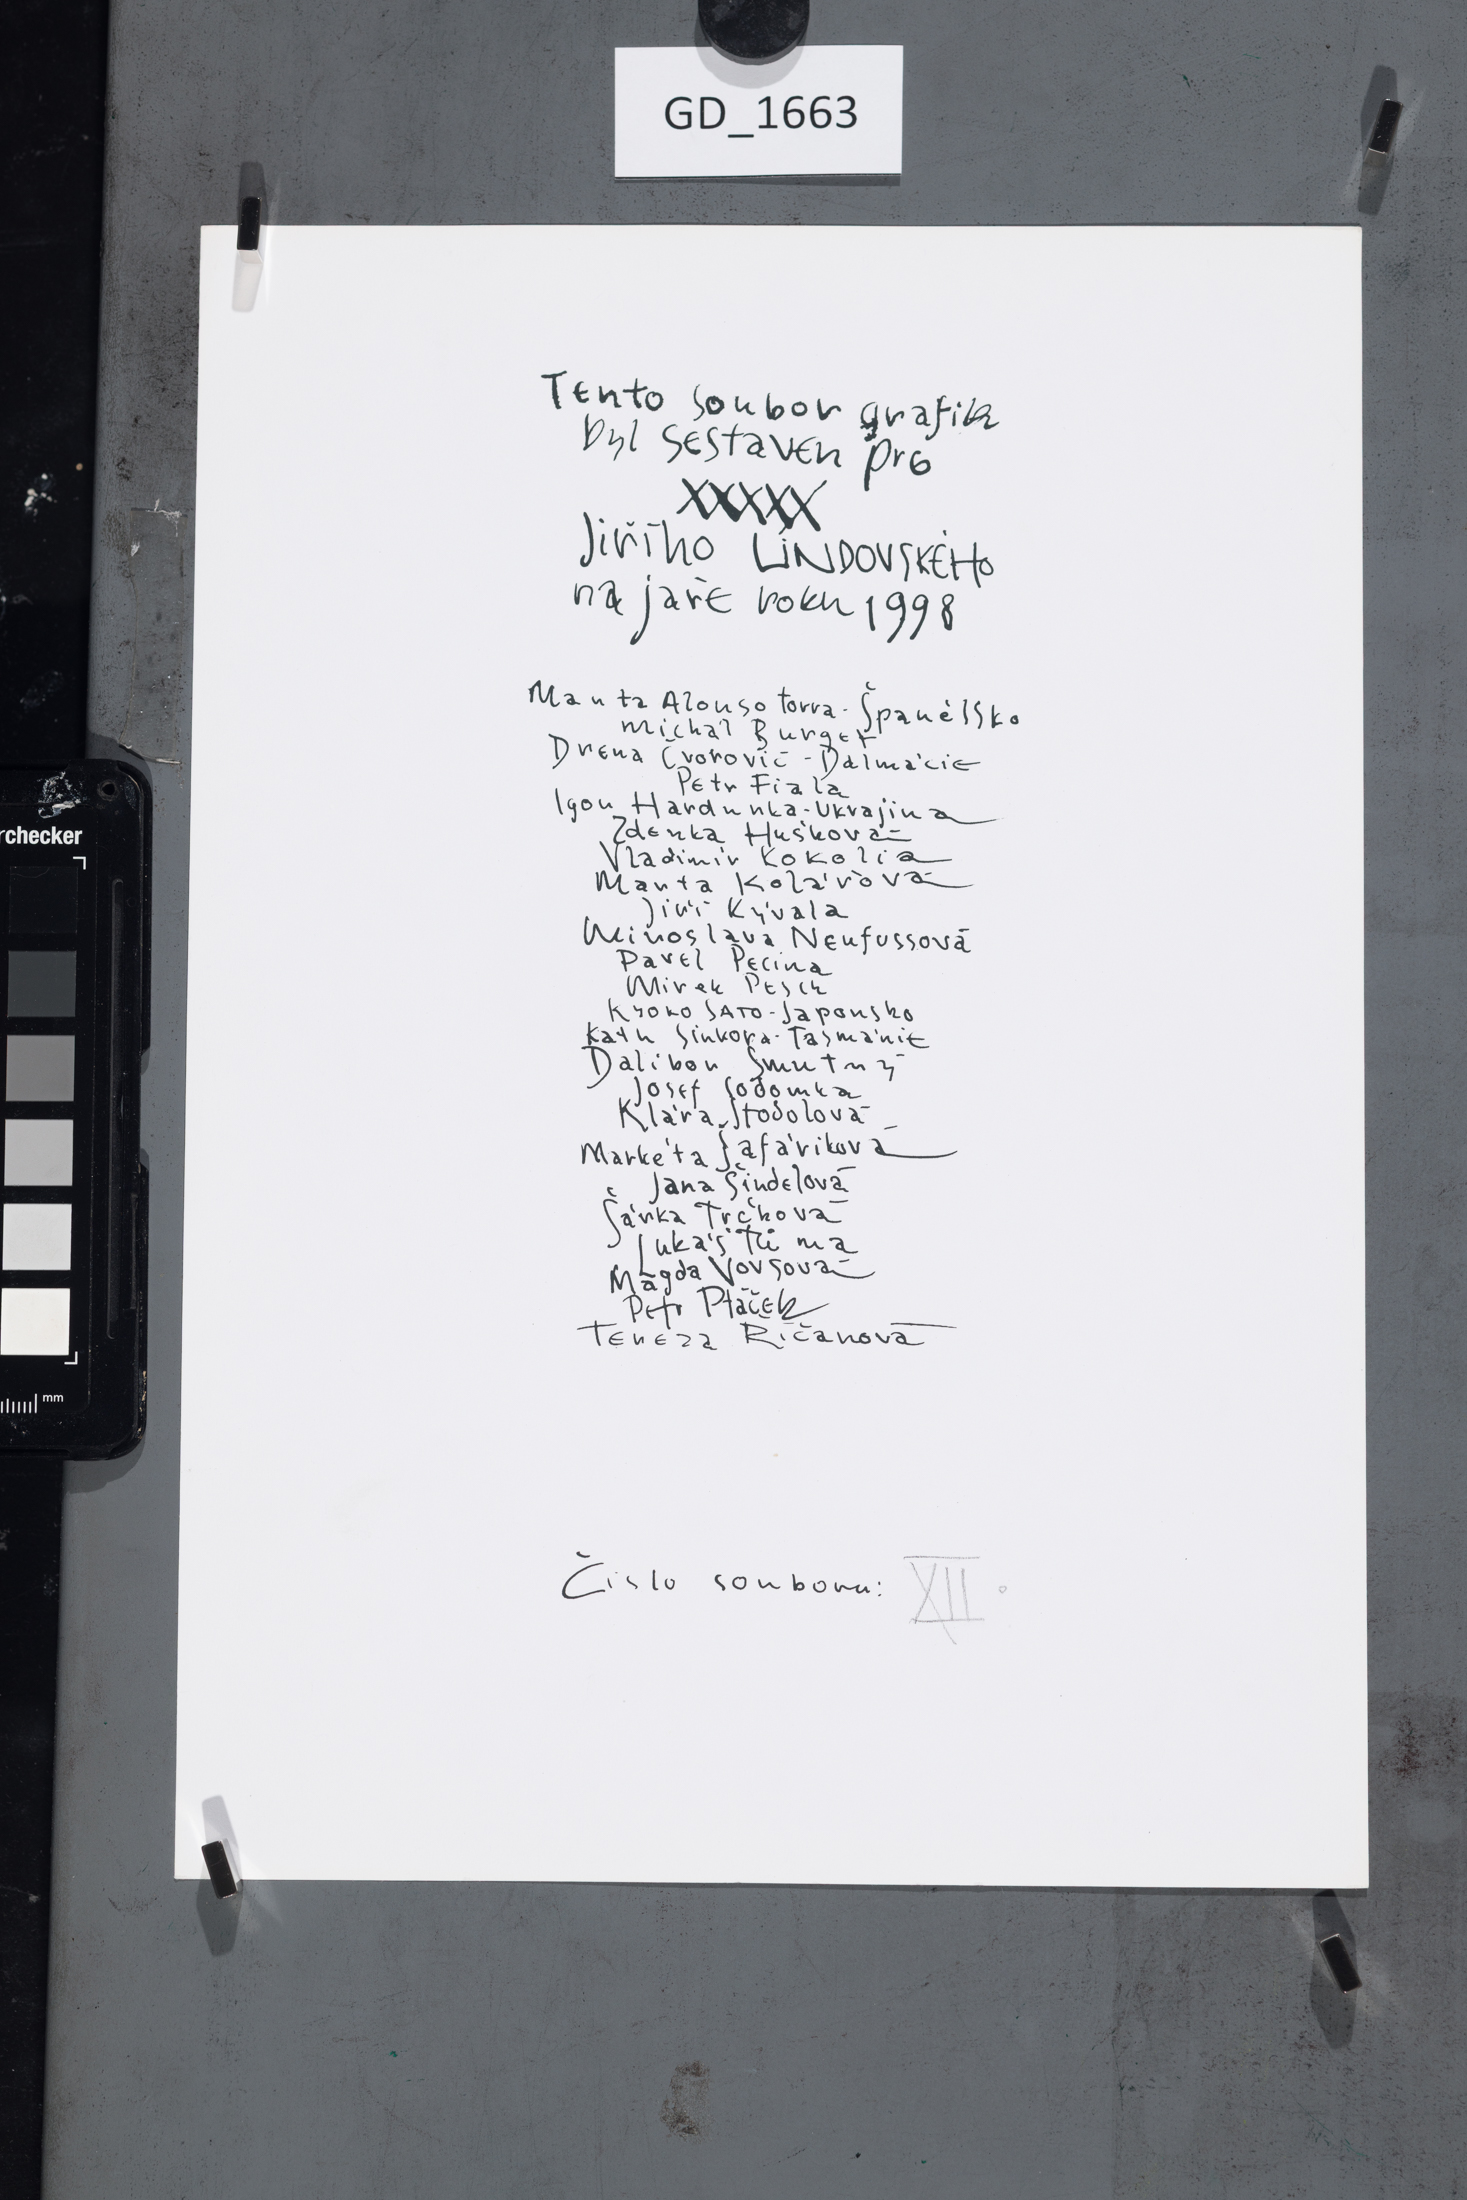 GD_1663
Tento soubor grafik
byl sestaven pro
XXXXX
Jiřího LINDOVSKÉHO
na jaře roku 1998
Marta Alonso Torra - Španělsko
Michal Burget
Drena Čvorovič - Dalmácie
Petr Fiala
Igor Hardunka - Ukrajina
Zdenka Hušková
Vladimír Kokolia
Marta Kolářová
Jiří Kývala
Miroslava Neufussová
Pavel Pecina
Mirek Pesch
Kyoko SATO - Japonsko
Kath Sinkora - Tasmánie
Dalibor Smutný
Josef Sodomka
Klára Stodolová
Markéta Šafáriková
Jana Šindelová
Šárka Trčková
Lukáš Tůma
Magda Vovsová
Petr Ptáček
Tereza Říčanová
Číslo souboru: XII.
rchecker
mm